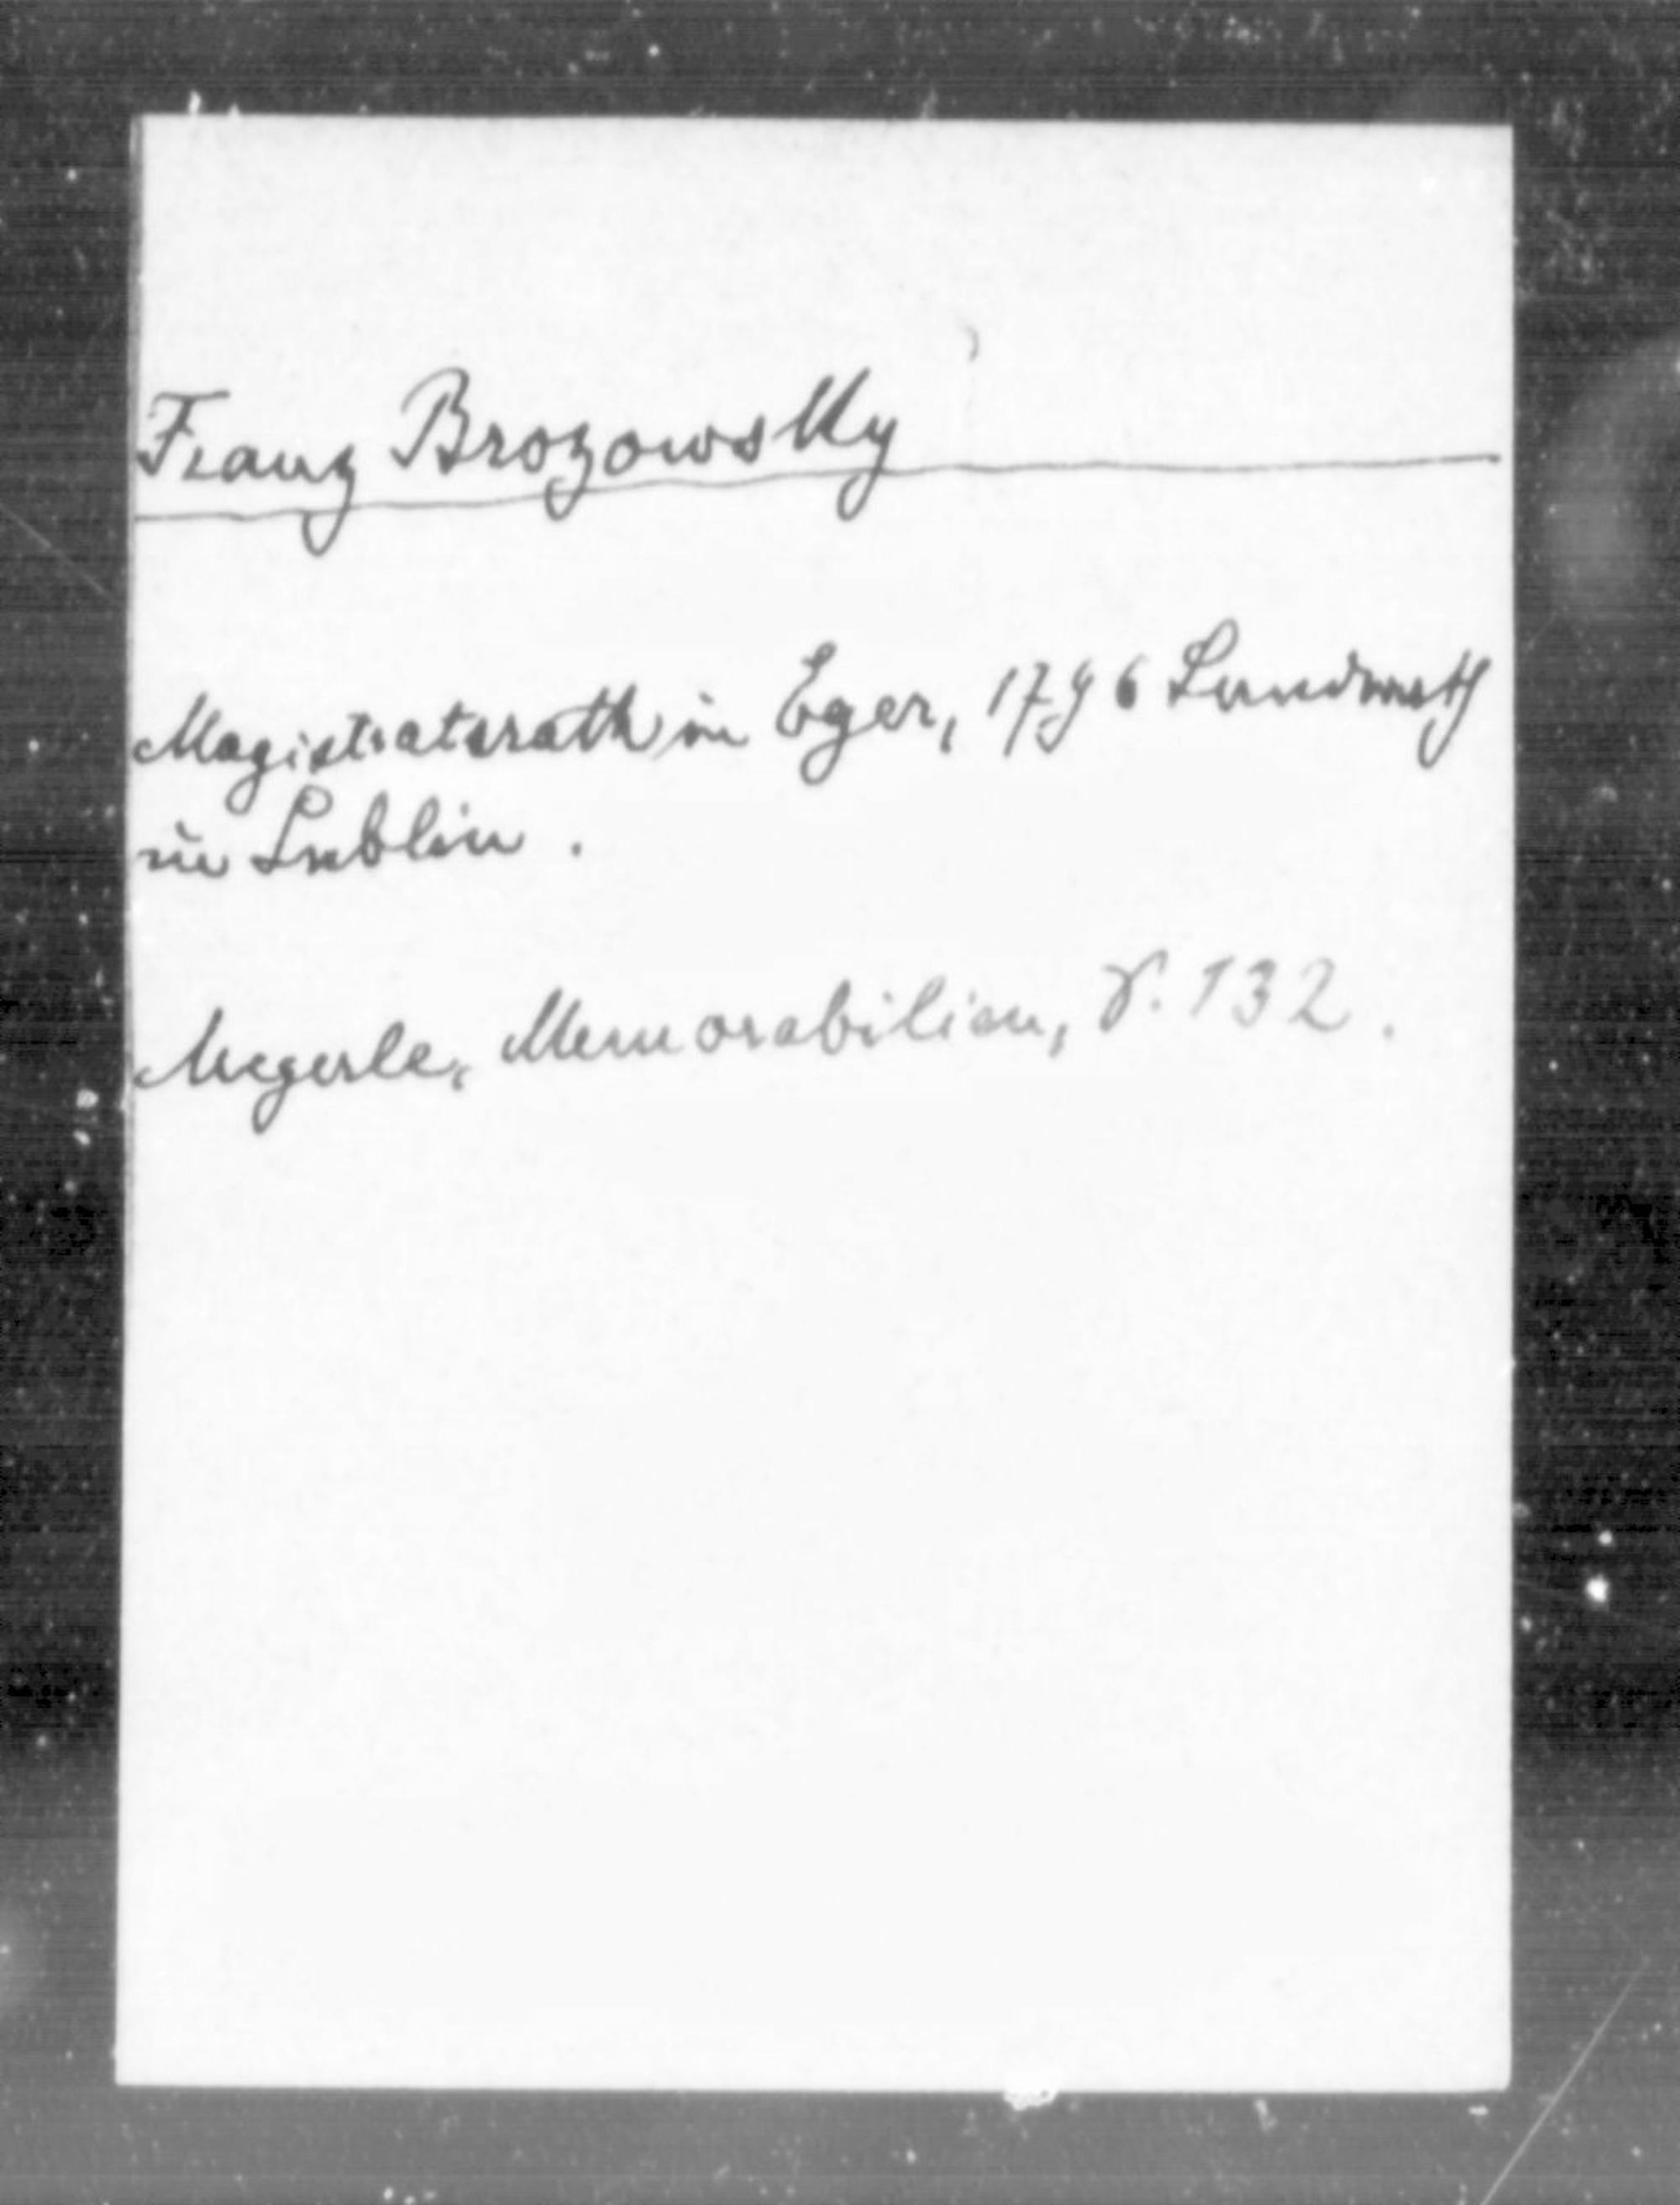 Franz Brozowsky
Magistratsrath in Eger, 1796 Landrath
in Lublin.
Megerle, Memorabilien, S. 132.